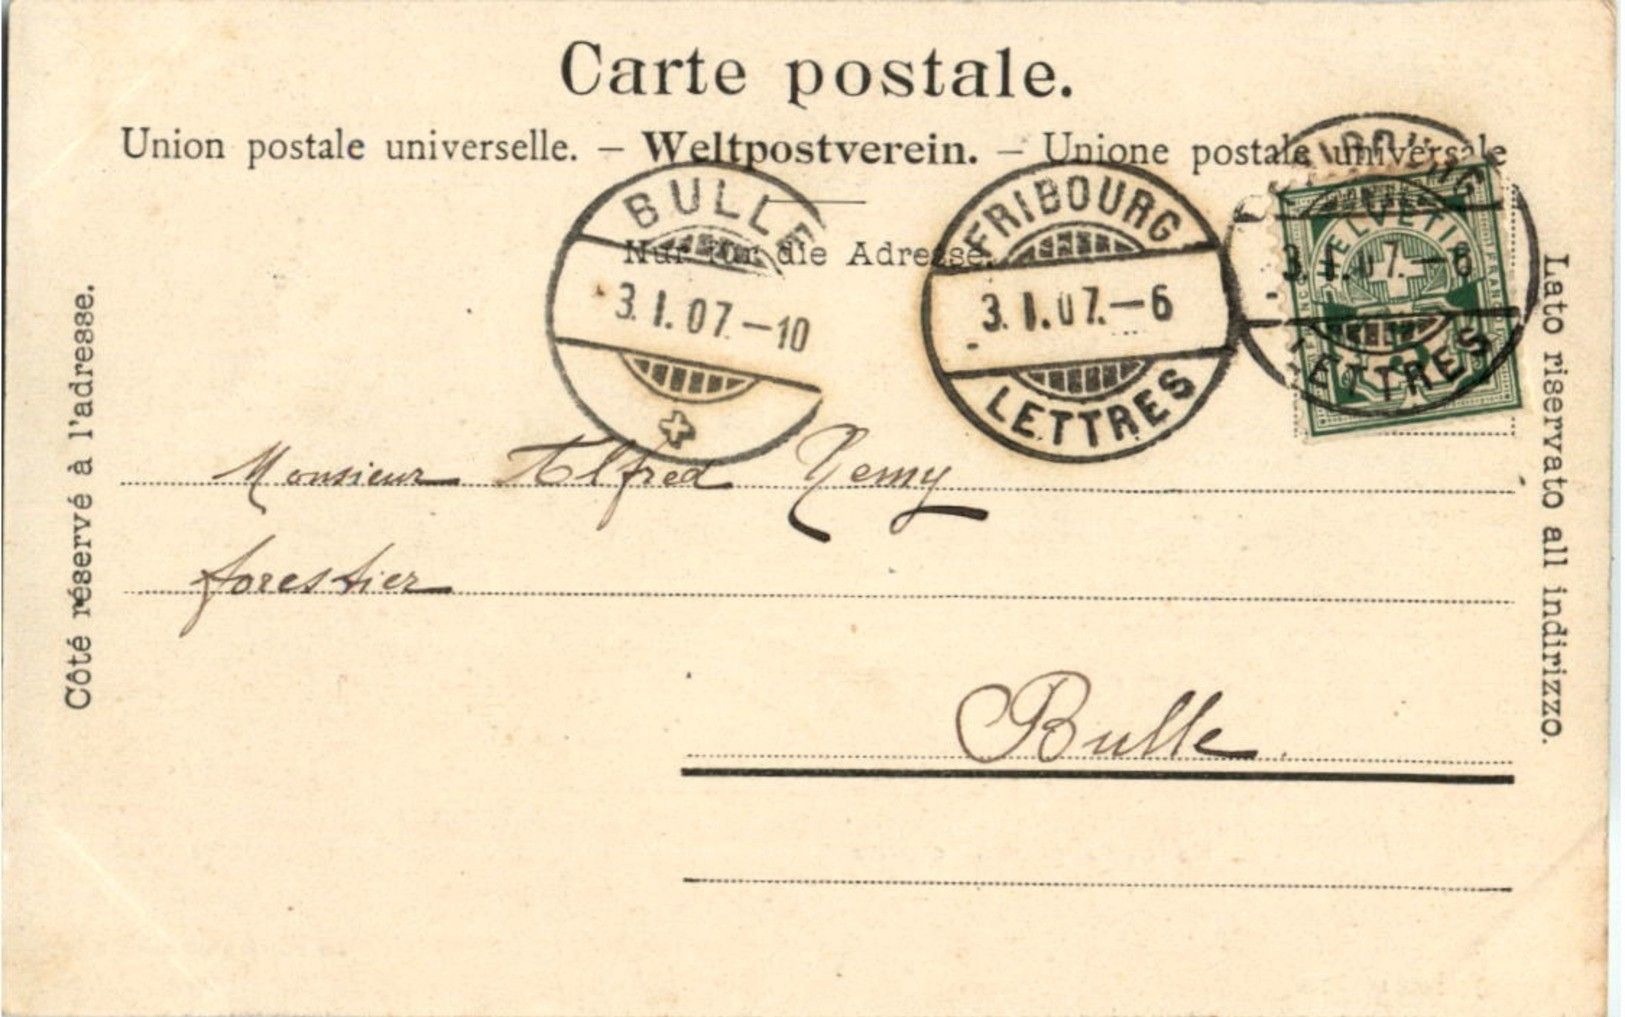 Carte postale.
Union postale universelle. – Weltpostverein. – Unione postale universale
Nur für die Adresse.
BULLE
3.I.07.–10
FRIBOURG
3.I.07.–6
LETTRES
FRIBOURG
3.I.07.–6
LETTRES
HELVETIA
FRANCO
5
Côté réservé à l'adresse.
Lato riservato all indirizzo.
Monsieur Alfred Remy
forestier
Bulle.